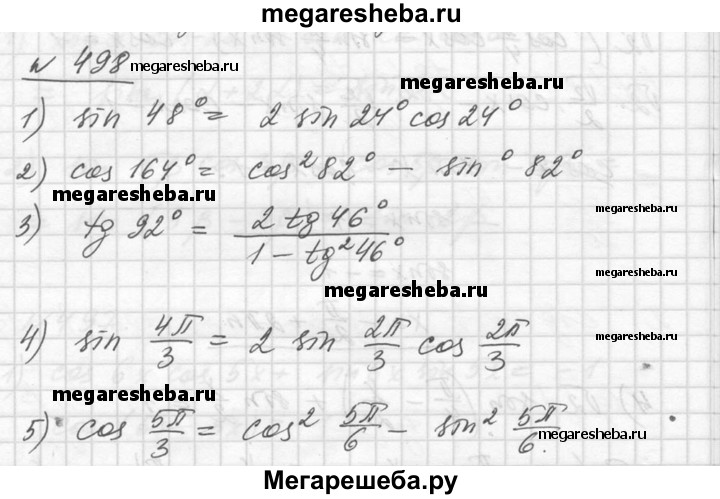 megaresheba.ru
№ 498 megaresheba.ru
megaresheba.ru
1) sin 48° = 2 sin 24° cos 24°
2) cos 164° = cos² 82° − sin° 82°
megaresheba.ru megaresheba.ru
3) tg 92° = \frac{2 tg 46°}{1 − tg² 46°}
megaresheba.ru
megaresheba.ru
4) sin \frac{4π}{3} = 2 sin \frac{2π}{3} cos \frac{2π}{3}
megaresheba.ru
megaresheba.ru
5) cos \frac{5π}{3} = cos² \frac{5π}{6} − sin² \frac{5π}{6}.
megaresheba.ru
Мегарешеба.ру